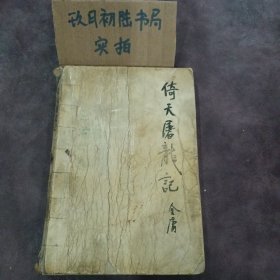 玖月初陆书局
实拍
倚天屠龍記
金庸